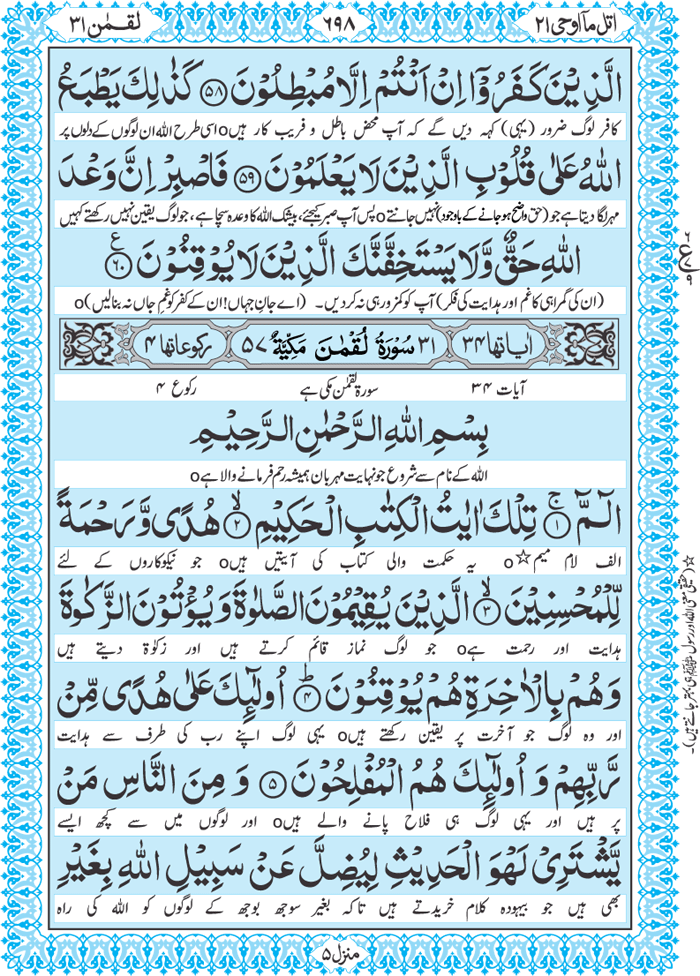 اتل مآ اوحی ۲۱
۶۹۸
لقمٰن ۳۱
الَّذِيْنَ كَفَرُوْۤا اِنْ اَنْتُمْ اِلَّا مُبْطِلُوْنَ ۝۵۸ كَذٰلِكَ يَطْبَعُ
کافر لوگ ضرور (یہی) کہہ دیں گے کہ آپ محض باطل و فریب کار ہیں o اسی طرح اللہ ان لوگوں کے دلوں پر
اللّٰهُ عَلٰى قُلُوْبِ الَّذِيْنَ لَا يَعْلَمُوْنَ ۝۵۹ فَاصْبِرْ اِنَّ وَعْدَ
مہر لگا دیتا ہے جو (حق واضح ہو جانے کے باوجود) نہیں جانتے o پس آپ صبر کیجئے، بیشک اللہ کا وعدہ سچا ہے، جو لوگ یقین نہیں رکھتے کہیں
اللّٰهِ حَقٌّ وَّلَا يَسْتَخِفَّنَّكَ الَّذِيْنَ لَا يُوْقِنُوْنَ ۝۶۰ ع
(ان کی گمراہی کا غم اور ہدایت کی فکر) آپ کو کمزور ہی نہ کر دیں۔ (اے جانِ جہاں! ان کے کفر کو غمِ جاں نہ بنالیں) o
اٰیاتھا ۳۴ ۳۱ سُوْرَةُ لُقْمٰنَ مَكِّيَّةٌ ۵۷ رکوعاتھا ۴
آیات ۳۴ سورۃ لقمٰن مکی ہے رکوع ۴
بِسْمِ اللّٰهِ الرَّحْمٰنِ الرَّحِيْمِ
اللہ کے نام سے شروع جو نہایت مہربان ہمیشہ رحم فرمانے والا ہے o
الٓمّٓ ۝۱ ج تِلْكَ اٰيٰتُ الْكِتٰبِ الْحَكِيْمِ ۝۲ لا هُدًى وَّرَحْمَةً
الف لام میم☆ o یہ حکمت والی کتاب کی آیتیں ہیں o جو نیکوکاروں کے لئے
لِّلْمُحْسِنِيْنَ ۝۳ لا الَّذِيْنَ يُقِيْمُوْنَ الصَّلٰوةَ وَيُؤْتُوْنَ الزَّكٰوةَ
ہدایت اور رحمت ہے o جو لوگ نماز قائم کرتے ہیں اور زکوٰۃ دیتے ہیں
وَهُمْ بِالْاٰخِرَةِ هُمْ يُوْقِنُوْنَ ۝۴ ط اُولٰٓئِكَ عَلٰى هُدًى مِّنْ
اور وہ لوگ جو آخرت پر یقین رکھتے ہیں o یہی لوگ اپنے رب کی طرف سے ہدایت
رَّبِّهِمْ وَ اُولٰٓئِكَ هُمُ الْمُفْلِحُوْنَ ۝۵ وَ مِنَ النَّاسِ مَنْ
پر ہیں اور یہی لوگ ہی فلاح پانے والے ہیں o اور لوگوں میں سے کچھ ایسے
يَّشْتَرِيْ لَهْوَ الْحَدِيْثِ لِيُضِلَّ عَنْ سَبِيْلِ اللّٰهِ بِغَيْرِ
بھی ہیں جو بیہودہ کلام خریدتے ہیں تاکہ بغیر سوجھ بوجھ کے لوگوں کو اللہ کی راہ
منزل ۵
☆ (حقیقی معنی اللہ اور رسول ﷺ ہی بہتر جانتے ہیں)۔